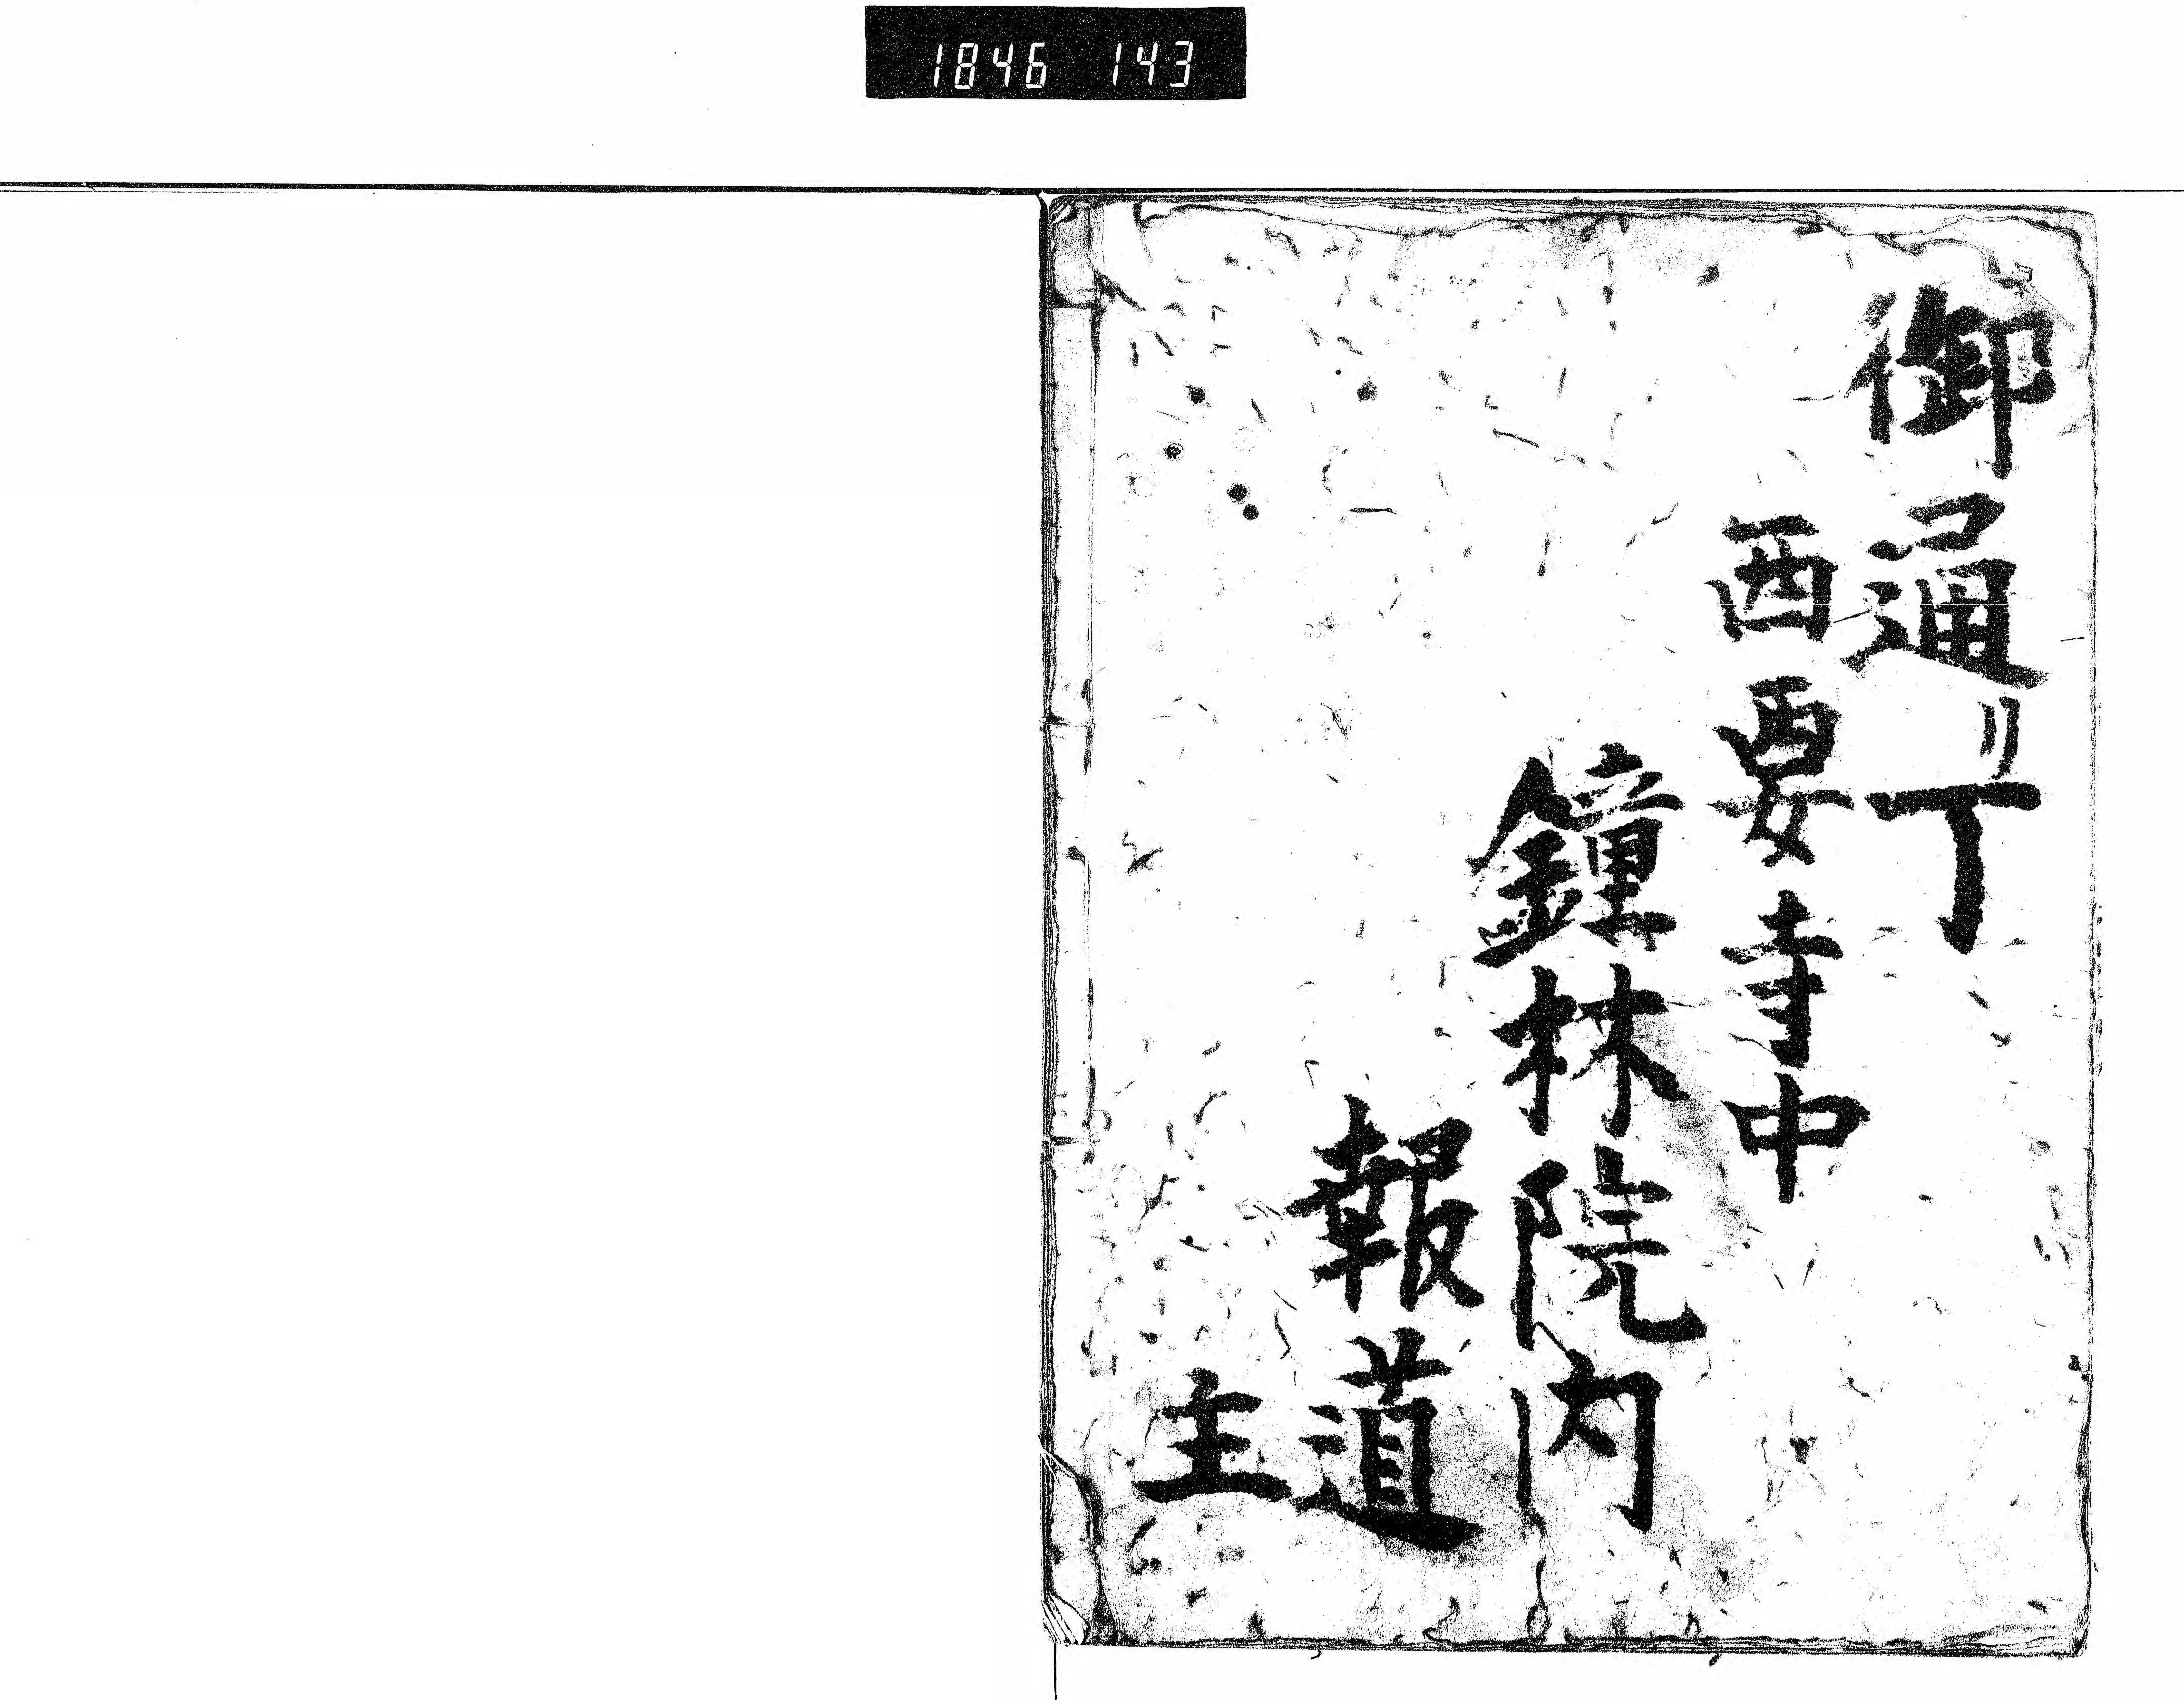 1846 143
御通リ丁
西要寺中
鐘林院内
報道
主